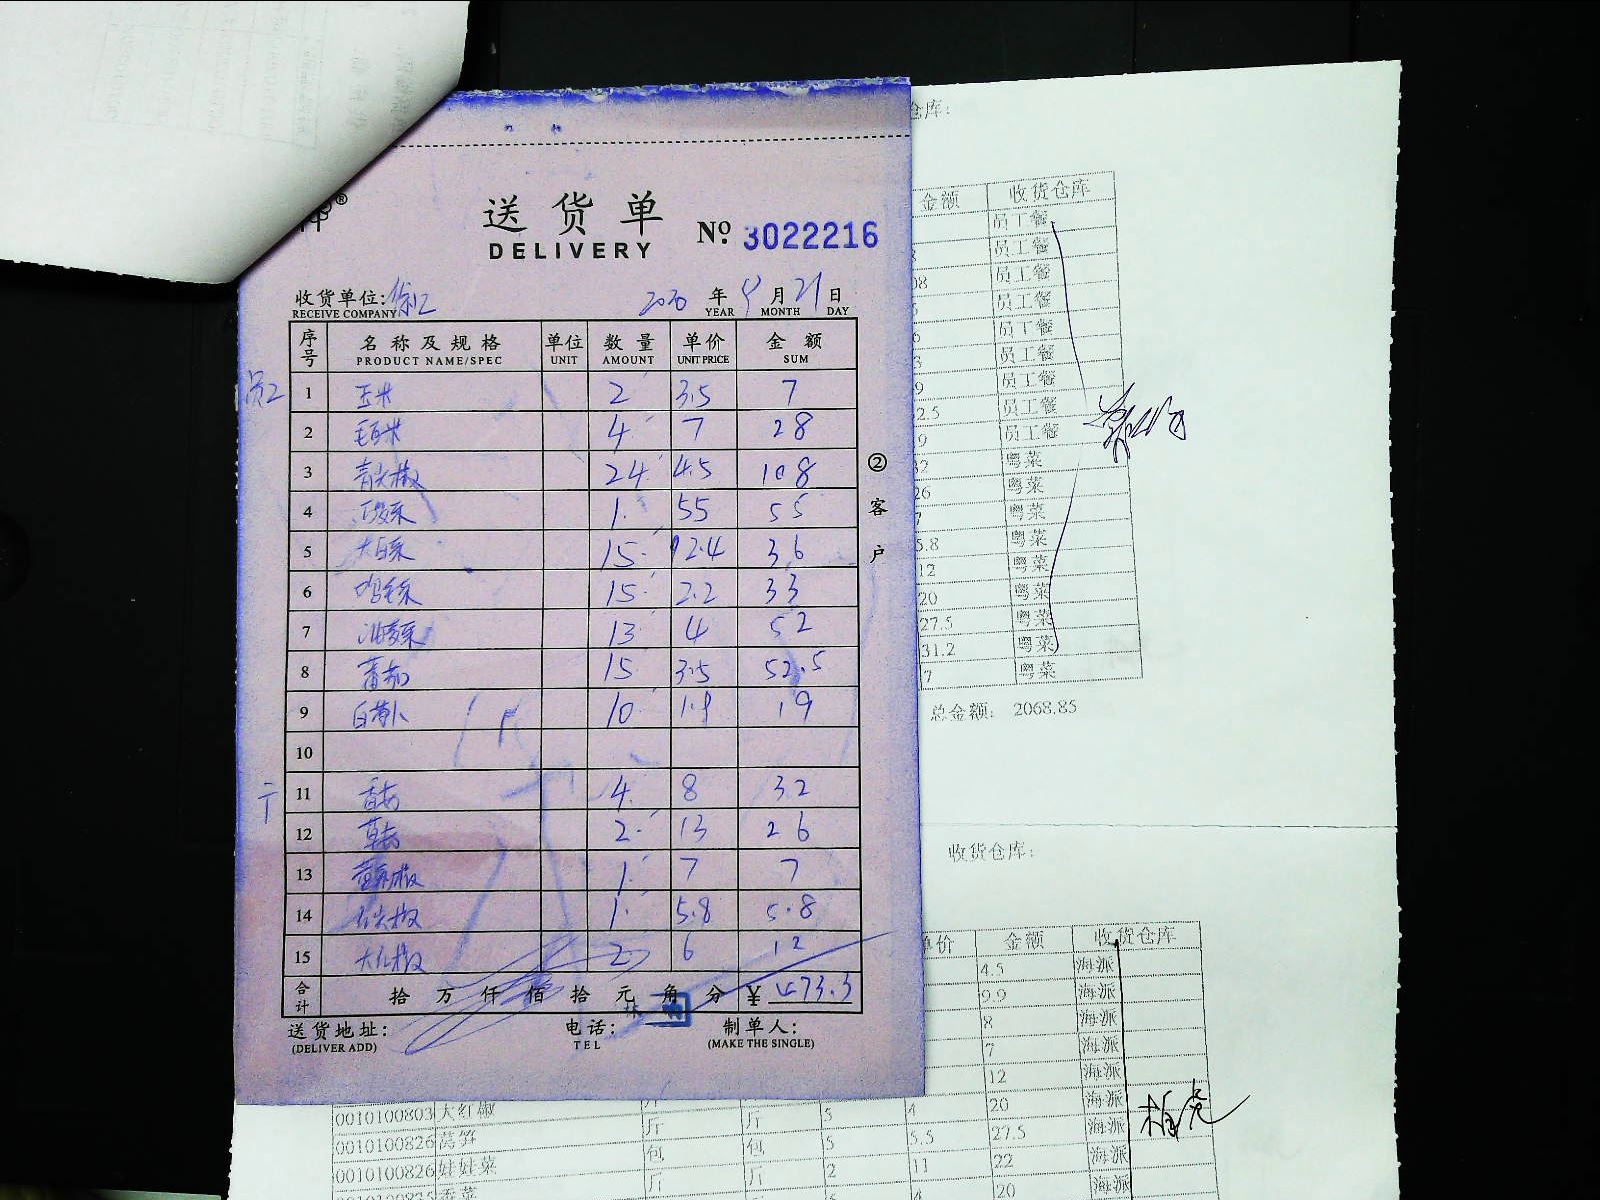 送货单
DELIVERY
№ 3022216
收货单位:徐汇 2020 年 月 21 日
RECEIVE COMPANY YEAR MONTH DAY
序号 名称及规格 单位 数量 单价 金额
PRODUCT NAME/SPEC UNIT AMOUNT UNIT PRICE SUM
员工 1 玉米 2 3.5 7
2 4 7 28
3 青尖椒 24 4.5 108
4 1 55 55
5 大白菜 15 2.4 36
6 鸡毛菜 15 2.2 33
7 油麦菜 13 4 52
8 番茄 15 3.5 52.5
9 白萝卜 10 1.9 19
10
11 香 4 8 32
12 草 2 13 26
13 1 7 7
14 尖椒 1 5.8 5.8
15 大红椒 2 6 12
合计 拾 万 仟 佰 拾 元 角 分 ¥ 473.3
送货地址: 电话: 制单人:
(DELIVER ADD) TEL (MAKE THE SINGLE)
②客户
仓库:
金额 收货仓库
员工餐
员工餐
08 员工餐
员工餐
6 员工餐
员工餐
9 员工餐
2.5 员工餐
9 员工餐
32 粤菜
26 粤菜
7 粤菜
5.8 粤菜
12 粤菜
20 粤菜
27.5 粤菜
31.2 粤菜
7 粤菜
总金额: 2068.85
收货仓库:
单价 金额 收货仓库
4.5 海派
9.9 海派
8 海派
7 海派
12 海派
0010100803 大红椒 斤 斤 5 4 20 海派
0010100826 莴笋 斤 斤 5 5.5 27.5 海派
0010100826 娃娃菜 包 包 2 11 22 海派
斤 斤 4 20 海派